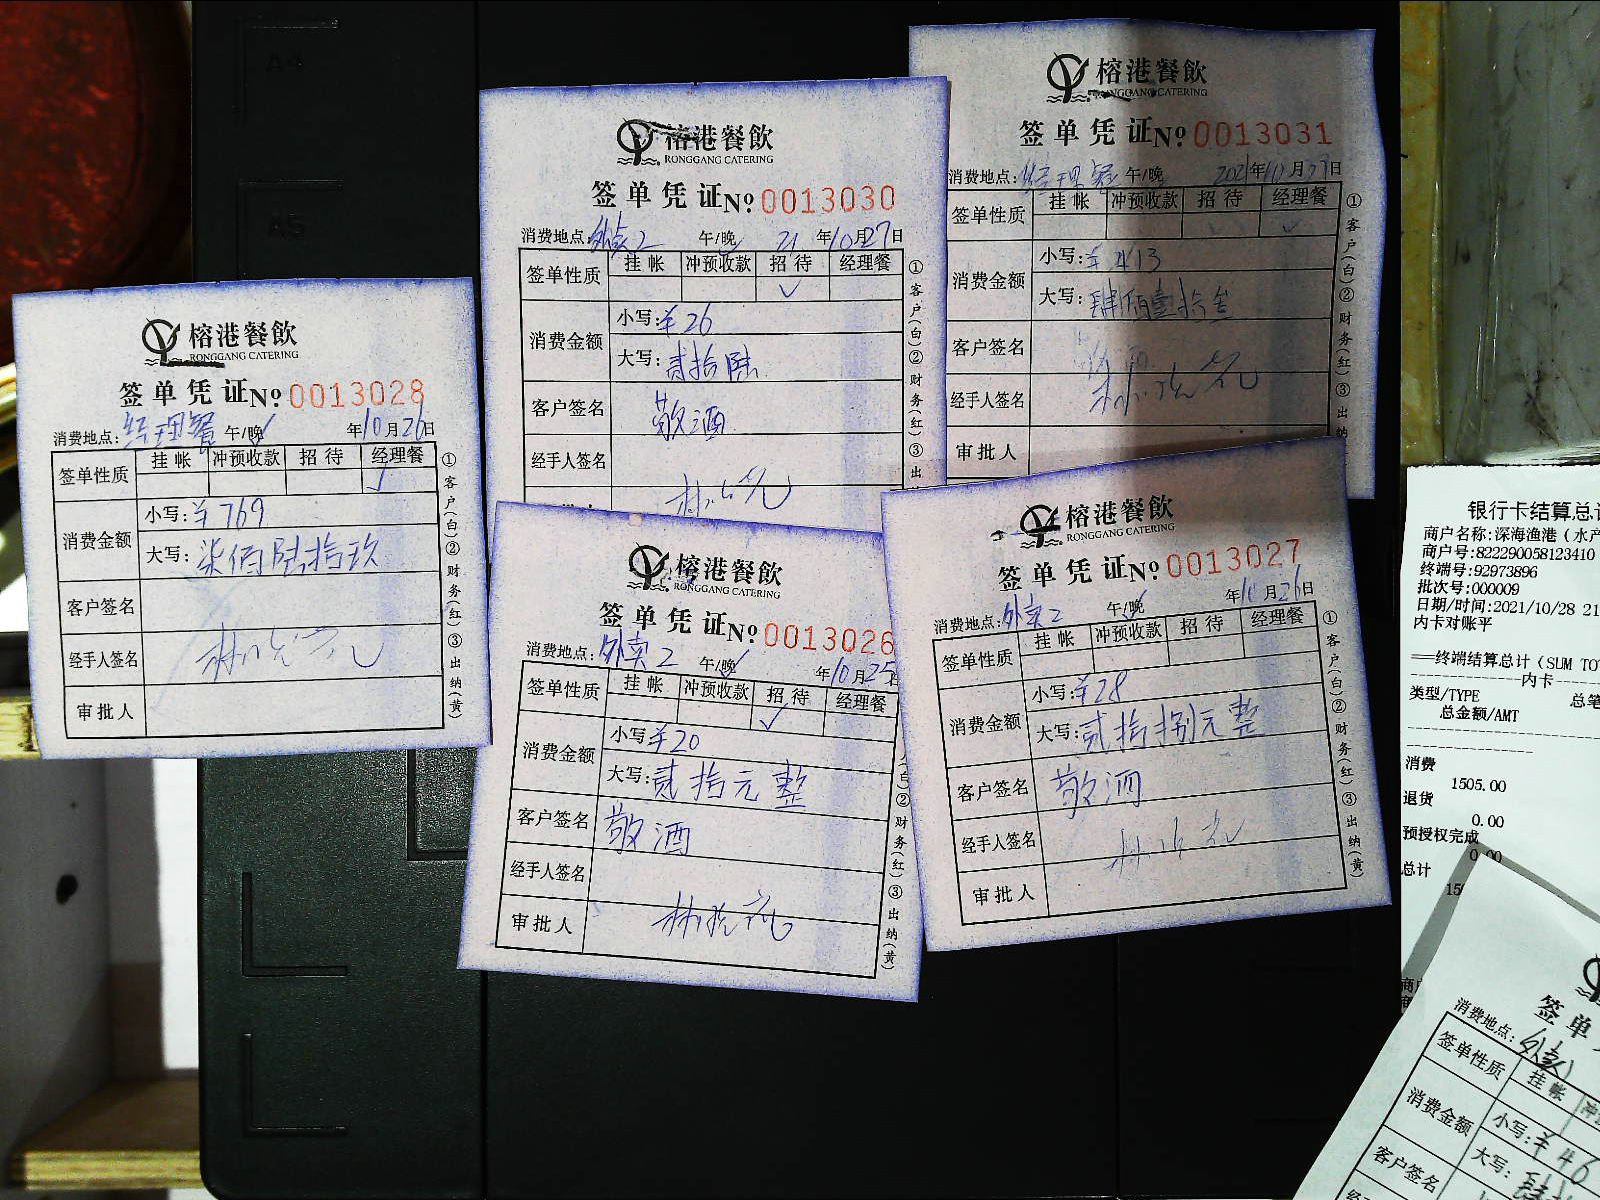 A4
A5
榕港餐飲
RONGGANG CATERING
签单凭证 No 0013028
消费地点: 经理餐 午/晚 年10月26日
签单性质 挂帐 冲预收款 招待 经理餐
消费金额 小写: ¥769
大写: 柒佰陆拾玖
客户签名
经手人签名
审批人
①客户(白)②财务(红)③出纳(黄)
榕港餐飲
RONGGANG CATERING
签单凭证 No 0013030
消费地点: 外卖2 午/晚 21年10月27日
签单性质 挂帐 冲预收款 招待 经理餐
消费金额 小写: ¥26
大写: 贰拾陆
客户签名 敬酒
经手人签名
①客户(白)②财务(红)③出
榕港餐飲
RONGGANG CATERING
签单凭证 No 0013031
消费地点: 经理餐 午/晚 2021年10月27日
签单性质 挂帐 冲预收款 招待 经理餐
消费金额 小写: ¥413
大写: 肆佰壹拾叁
客户签名
经手人签名
审批人
①客户(白)②财务(红)③出纳
榕港餐飲
RONGGANG CATERING
签单凭证 No 0013026
消费地点: 外卖2 午/晚 年10月25日
签单性质 挂帐 冲预收款 招待 经理餐
消费金额 小写: ¥20
大写: 贰拾元整
客户签名 敬酒
经手人签名
审批人
(白)②财务(红)③出纳(黄)
榕港餐飲
RONGGANG CATERING
签单凭证 No 0013027
消费地点: 外卖2 午/晚 年10月26日
签单性质 挂帐 冲预收款 招待 经理餐
消费金额 小写: ¥28
大写: 贰拾捌元整
客户签名 敬酒
经手人签名
审批人
①客户(白)②财务(红)③出纳(黄)
银行卡结算总
商户名称:深海渔港(水产
商户号:822290058123410
终端号:92973896
批次号:000009
日期/时间:2021/10/28 21
内卡对账平
===终端结算总计(SUM TO
内卡
类型/TYPE 总笔
总金额/AMT
消费
1505.00
退货
0.00
预授权完成
0.00
总计
签单
消费地点: 外卖1
签单性质 挂帐 冲
消费金额 小写: ¥46
大写:
客户签名